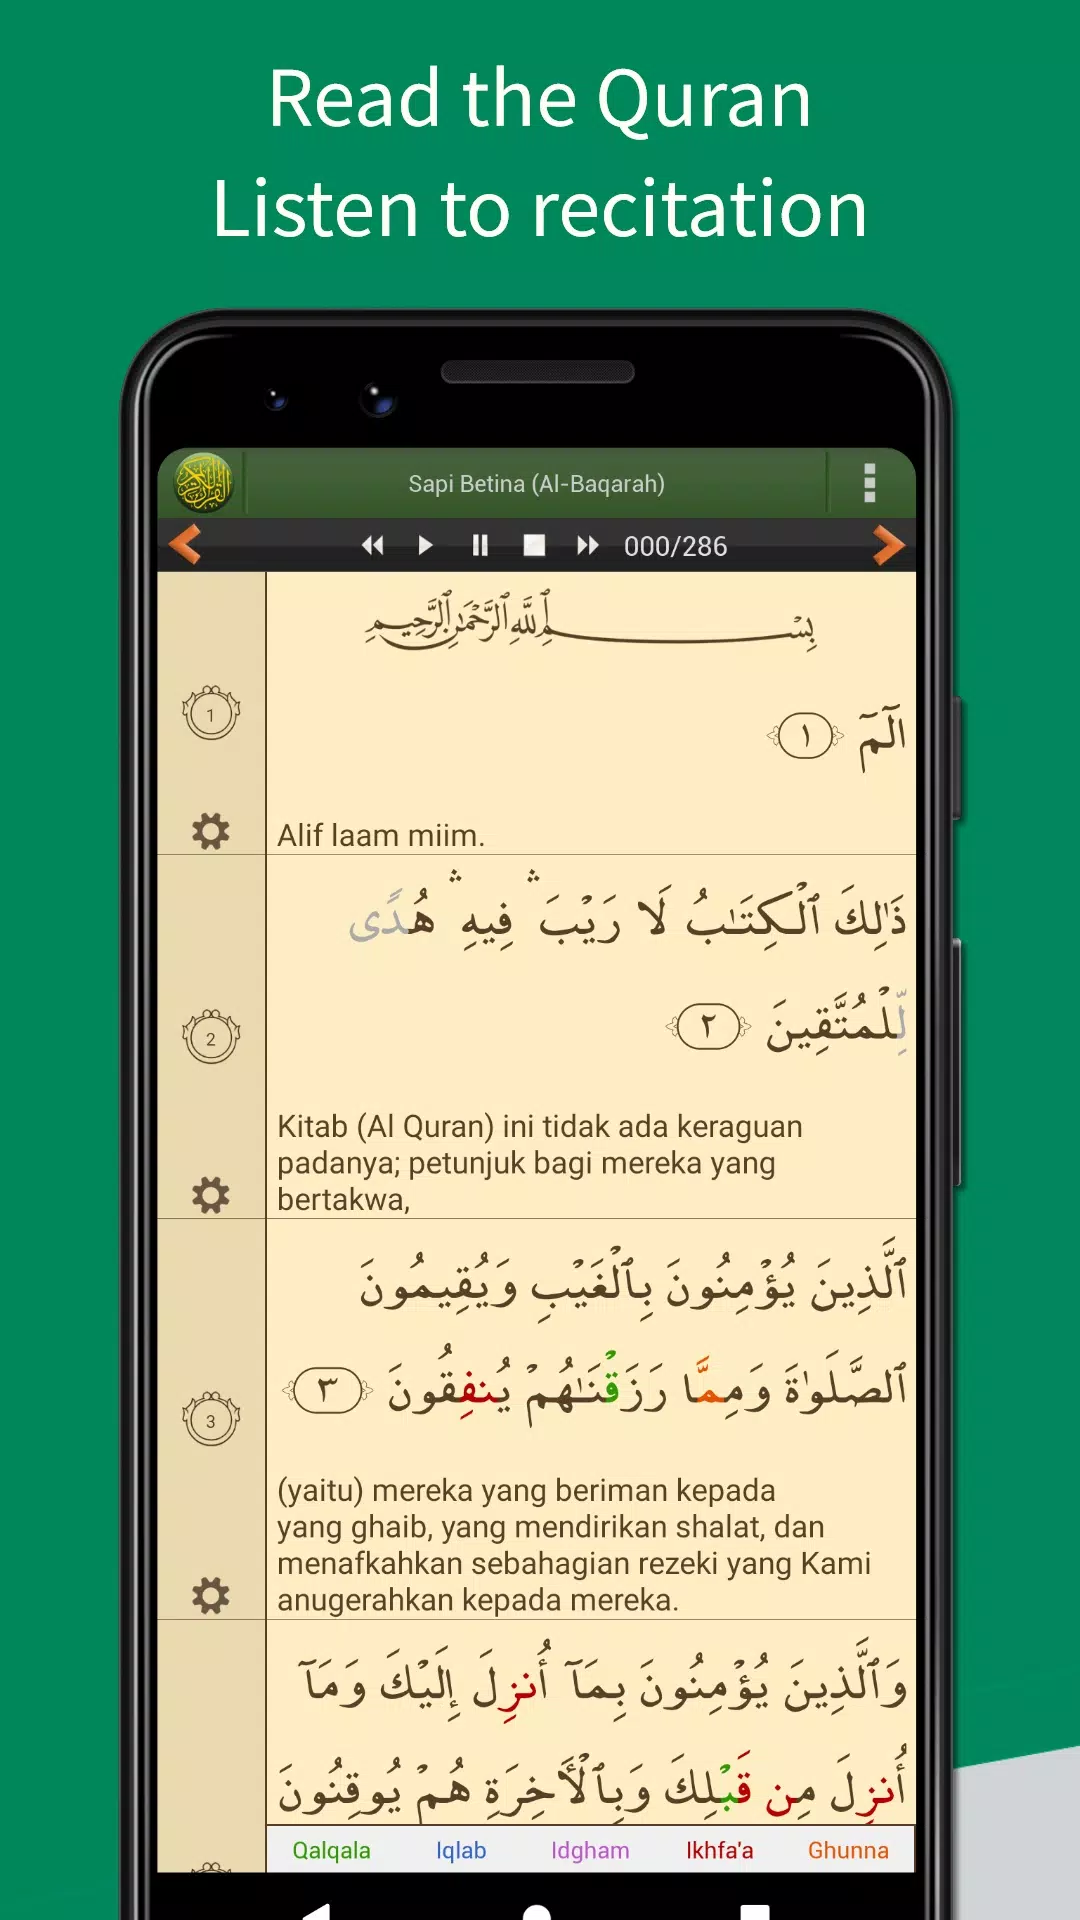 Read the Quran
Listen to recitation
Sapi Betina (Al-Baqarah)
000/286
بِسْمِ ٱللَّهِ ٱلرَّحْمَٰنِ ٱلرَّحِيمِ
1
الٓمٓ ١
Alif laam miim.
ذَٰلِكَ ٱلْكِتَـٰبُ لَا رَيْبَ ۛ فِيهِ ۛ هُدًى
2
لِّلْمُتَّقِينَ ٢
Kitab (Al Quran) ini tidak ada keraguan
padanya; petunjuk bagi mereka yang
bertakwa,
ٱلَّذِينَ يُؤْمِنُونَ بِٱلْغَيْبِ وَيُقِيمُونَ
3
ٱلصَّلَوٰةَ وَمِمَّا رَزَقْنَـٰهُمْ يُنفِقُونَ ٣
(yaitu) mereka yang beriman kepada
yang ghaib, yang mendirikan shalat, dan
menafkahkan sebahagian rezeki yang Kami
anugerahkan kepada mereka.
وَٱلَّذِينَ يُؤْمِنُونَ بِمَآ أُنزِلَ إِلَيْكَ وَمَآ
أُنزِلَ مِن قَبْلِكَ وَبِٱلْأَخِرَةِ هُمْ يُوقِنُونَ
Qalqala Iqlab Idgham Ikhfa'a Ghunna